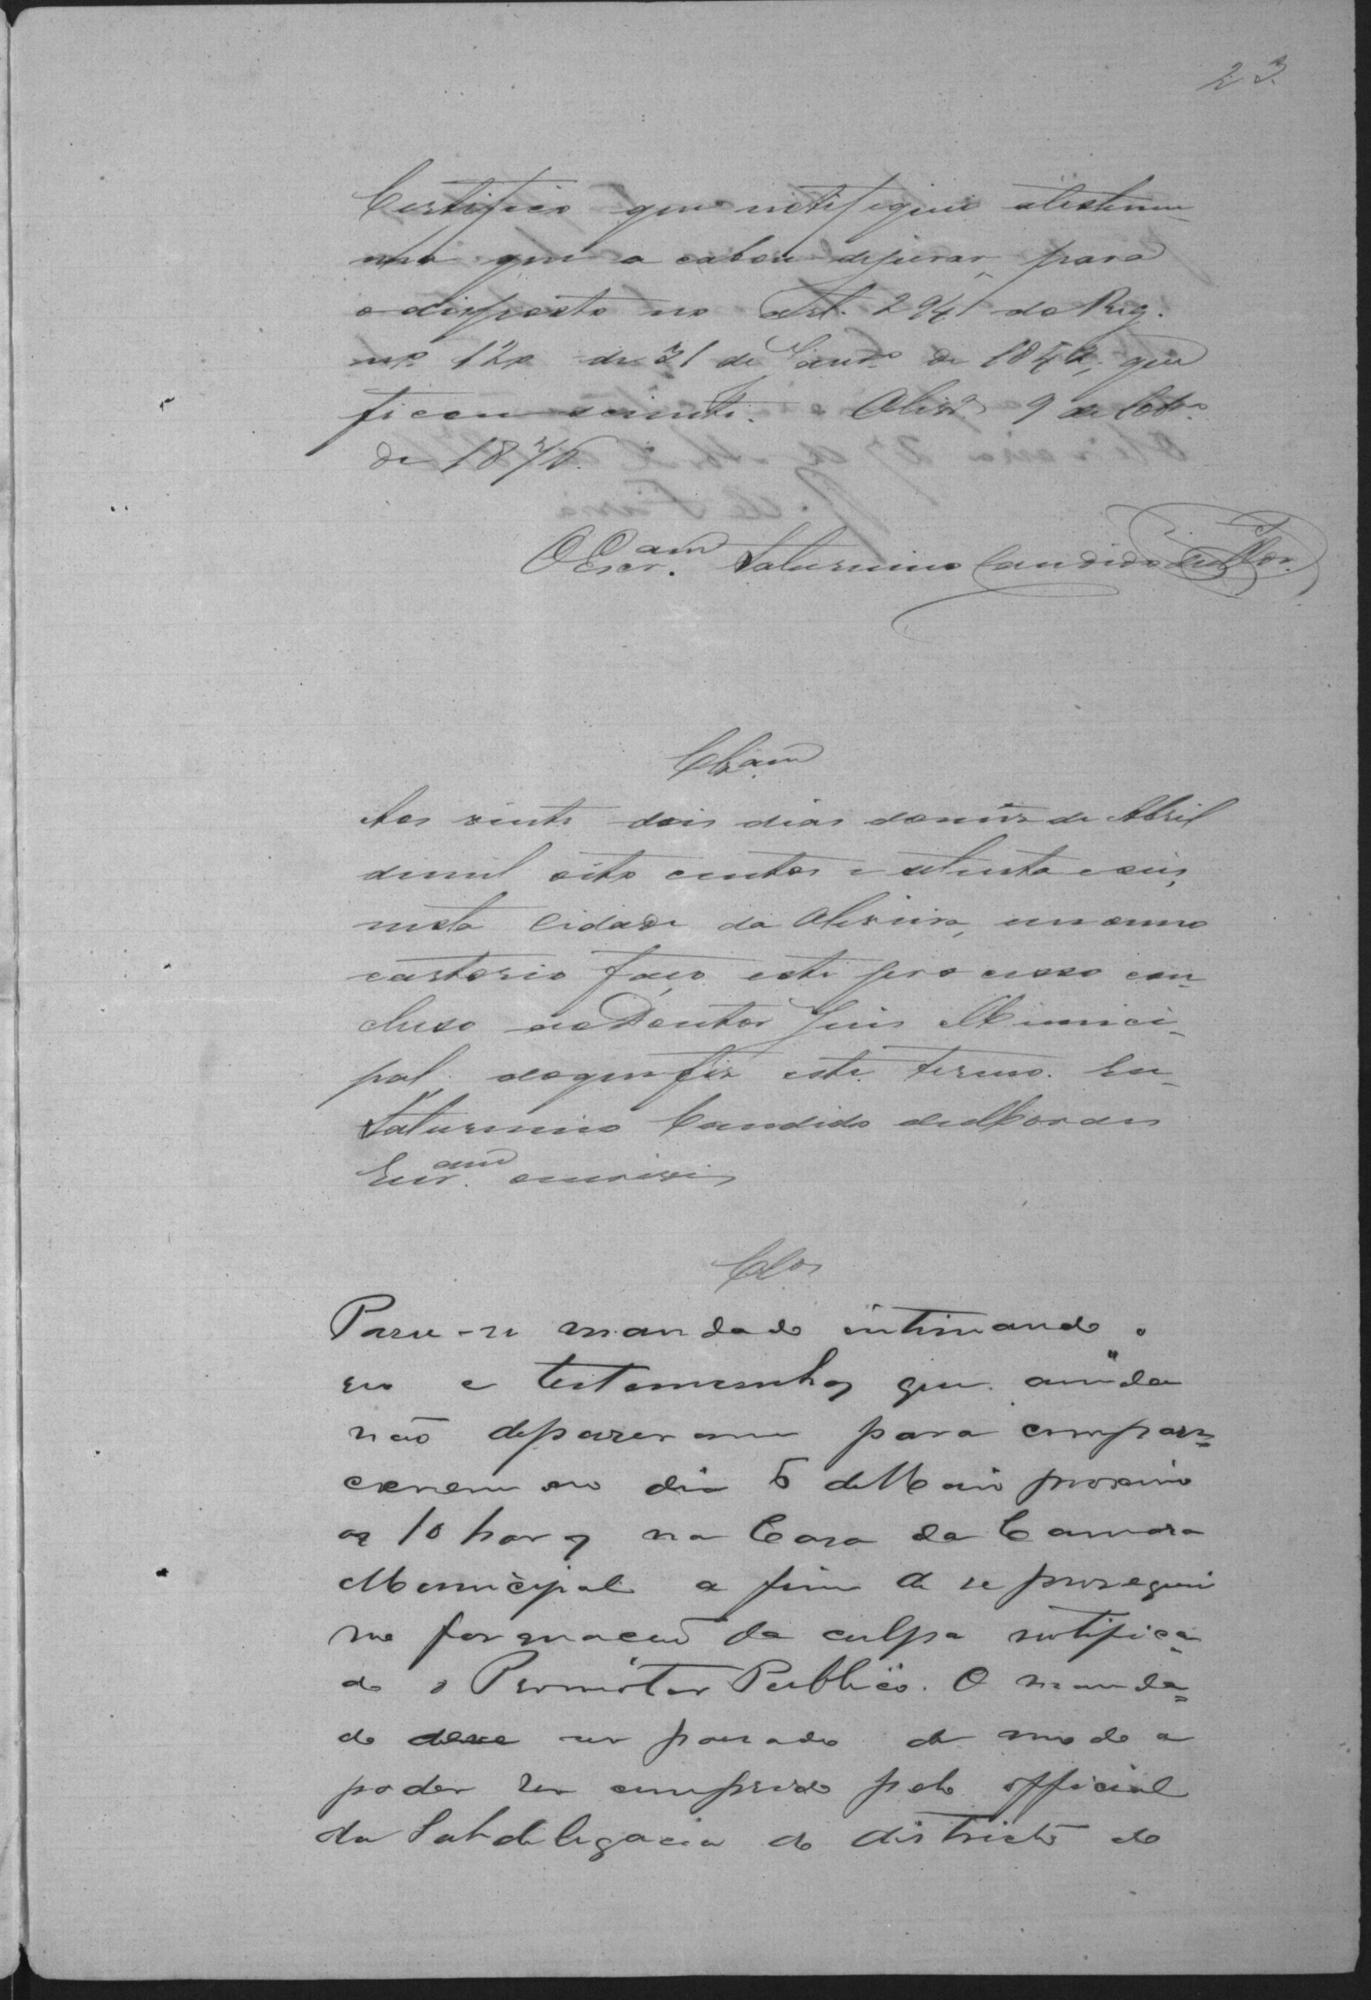 23
Certifico que notifiquei atestemu-
nha que a cabou dejurar, para
o disposto no Art. 294 do Reg.
nº 120 de 31 de Janrº de 1842, que
ficou sciente. Olivrª 9 de
de 1876.
O Escr.am Saturnino Candido de Mor.
Clsam
Aos vinte dois dias domez de Abril
demil oito centos e setenta e seis,
nesta Cidade da Oliveira, em meo
cartorio faço este processo con-
cluso ao Doutor Juis Munici-
pal, doque fiz este termo. Eu
Saturnino Candido de Moraes
Escr.am o escrivi
Clos
Passe-se mandado intimando o
reo e testemunhas que ainda
não depozeram para compare-
cerem no dia 5 de Maio proximo
as 10 horas na Casa da Camara
Municipal a fim de se proseguir
na formação da culpa notifica-
do o Promotor Publico. O manda-
do deve ser passado de modo a
poder ser cumprido pelo official
da Subdelegacia do districto do